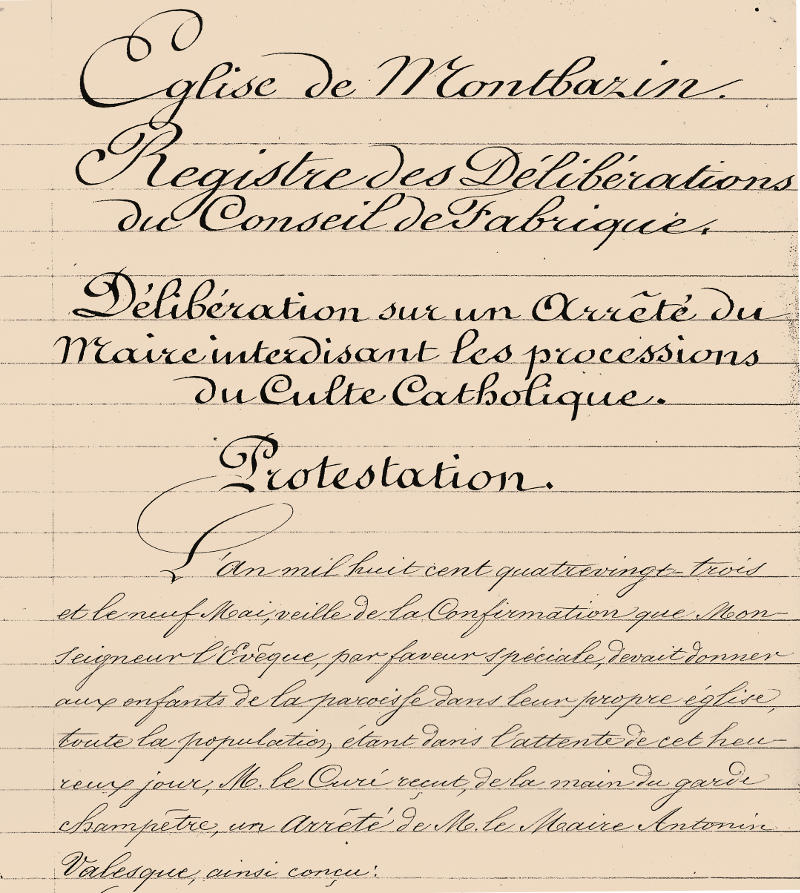 Eglise de Montbazin.
Registre des Délibérations
du Conseil de Fabrique.
Délibération sur un Arrêté du
Maire interdisant les processions
du Culte Catholique.
Protestation.
L'an mil huit cent quatrevingt-trois
et le neuf Mai, veille de la Confirmation que Mon-
seigneur l'Evêque, par faveur spéciale, devait donner
aux enfants de la paroisse dans leur propre église,
toute la population, étant dans l'attente de cet heu-
reux jour, M. le Curé reçut, de la main du garde
champêtre, un Arrêté de M. le Maire Antonin
Valesque, ainsi conçu: